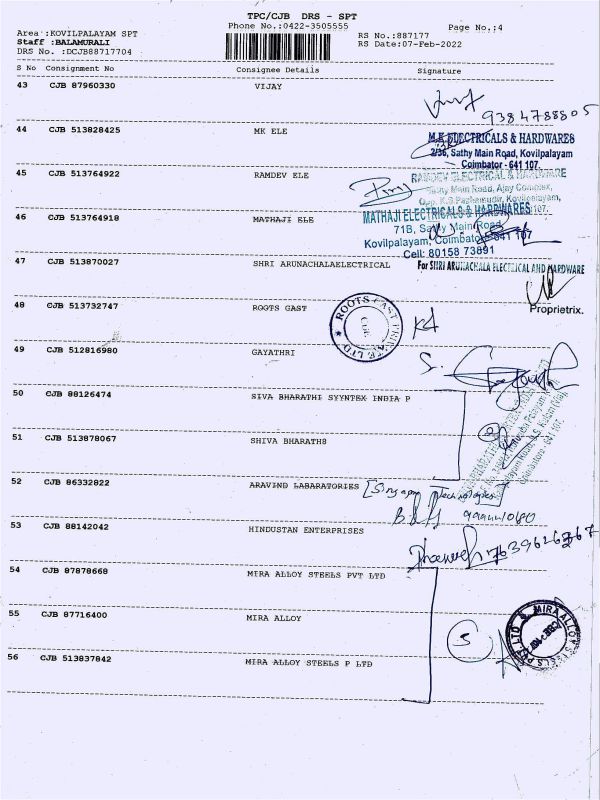 TPC/CJB DRS - SPT
Phone No.:0422-3505555
Page No.:4
Area :KOVILPALAYAM SPT
Staff :BALAMURALI
DRS No. :DCJB88717704
RS No.:887177
RS Date:07-Feb-2022
S No Consignment No Consignee Details Signature
43 CJB 87960330 VIJAY
9384788805
44 CJB 513828425 MK ELE
M.K ELECTRICALS & HARDWARES
2/36, Sathy Main Road, Kovilpalayam
Coimbator - 641 107.
45 CJB 513764922 RAMDEV ELE
RAMDEV ELECTRICAL & HARDWARE
Sathy Main Road, Ajay Complex,
Kovilpalayam,
46 CJB 513764918 MATHAJI ELE
MATHAJI ELECTRICALS & HARDWARES
71B, Sathy Main Road
Kovilpalayam, Coimbatore-641 107
Cell: 80158 73891
47 CJB 513870027 SHRI ARUNACHALAELECTRICAL
For SHRI ARUNACHALA ELECTRICAL AND HARDWARE
Proprietrix.
48 CJB 513732747 ROOTS GAST
ROOTS CAST PRIVATE LTD
49 CJB 512816980 GAYATHRI
50 CJB 88126474 SIVA BHARATHI SYYNTEX INDIA P
51 CJB 513878067 SHIVA BHARATH8
52 CJB 86332822 ARAVIND LABARATORIES
53 CJB 88142042 HINDUSTAN ENTERPRISES
54 CJB 87878668 MIRA ALLOY STEELS PVT LTD
55 CJB 87716400 MIRA ALLOY
MIRA ALLOY STEELS PVT LTD
56 CJB 513837842 MIRA ALLOY STEELS P LTD